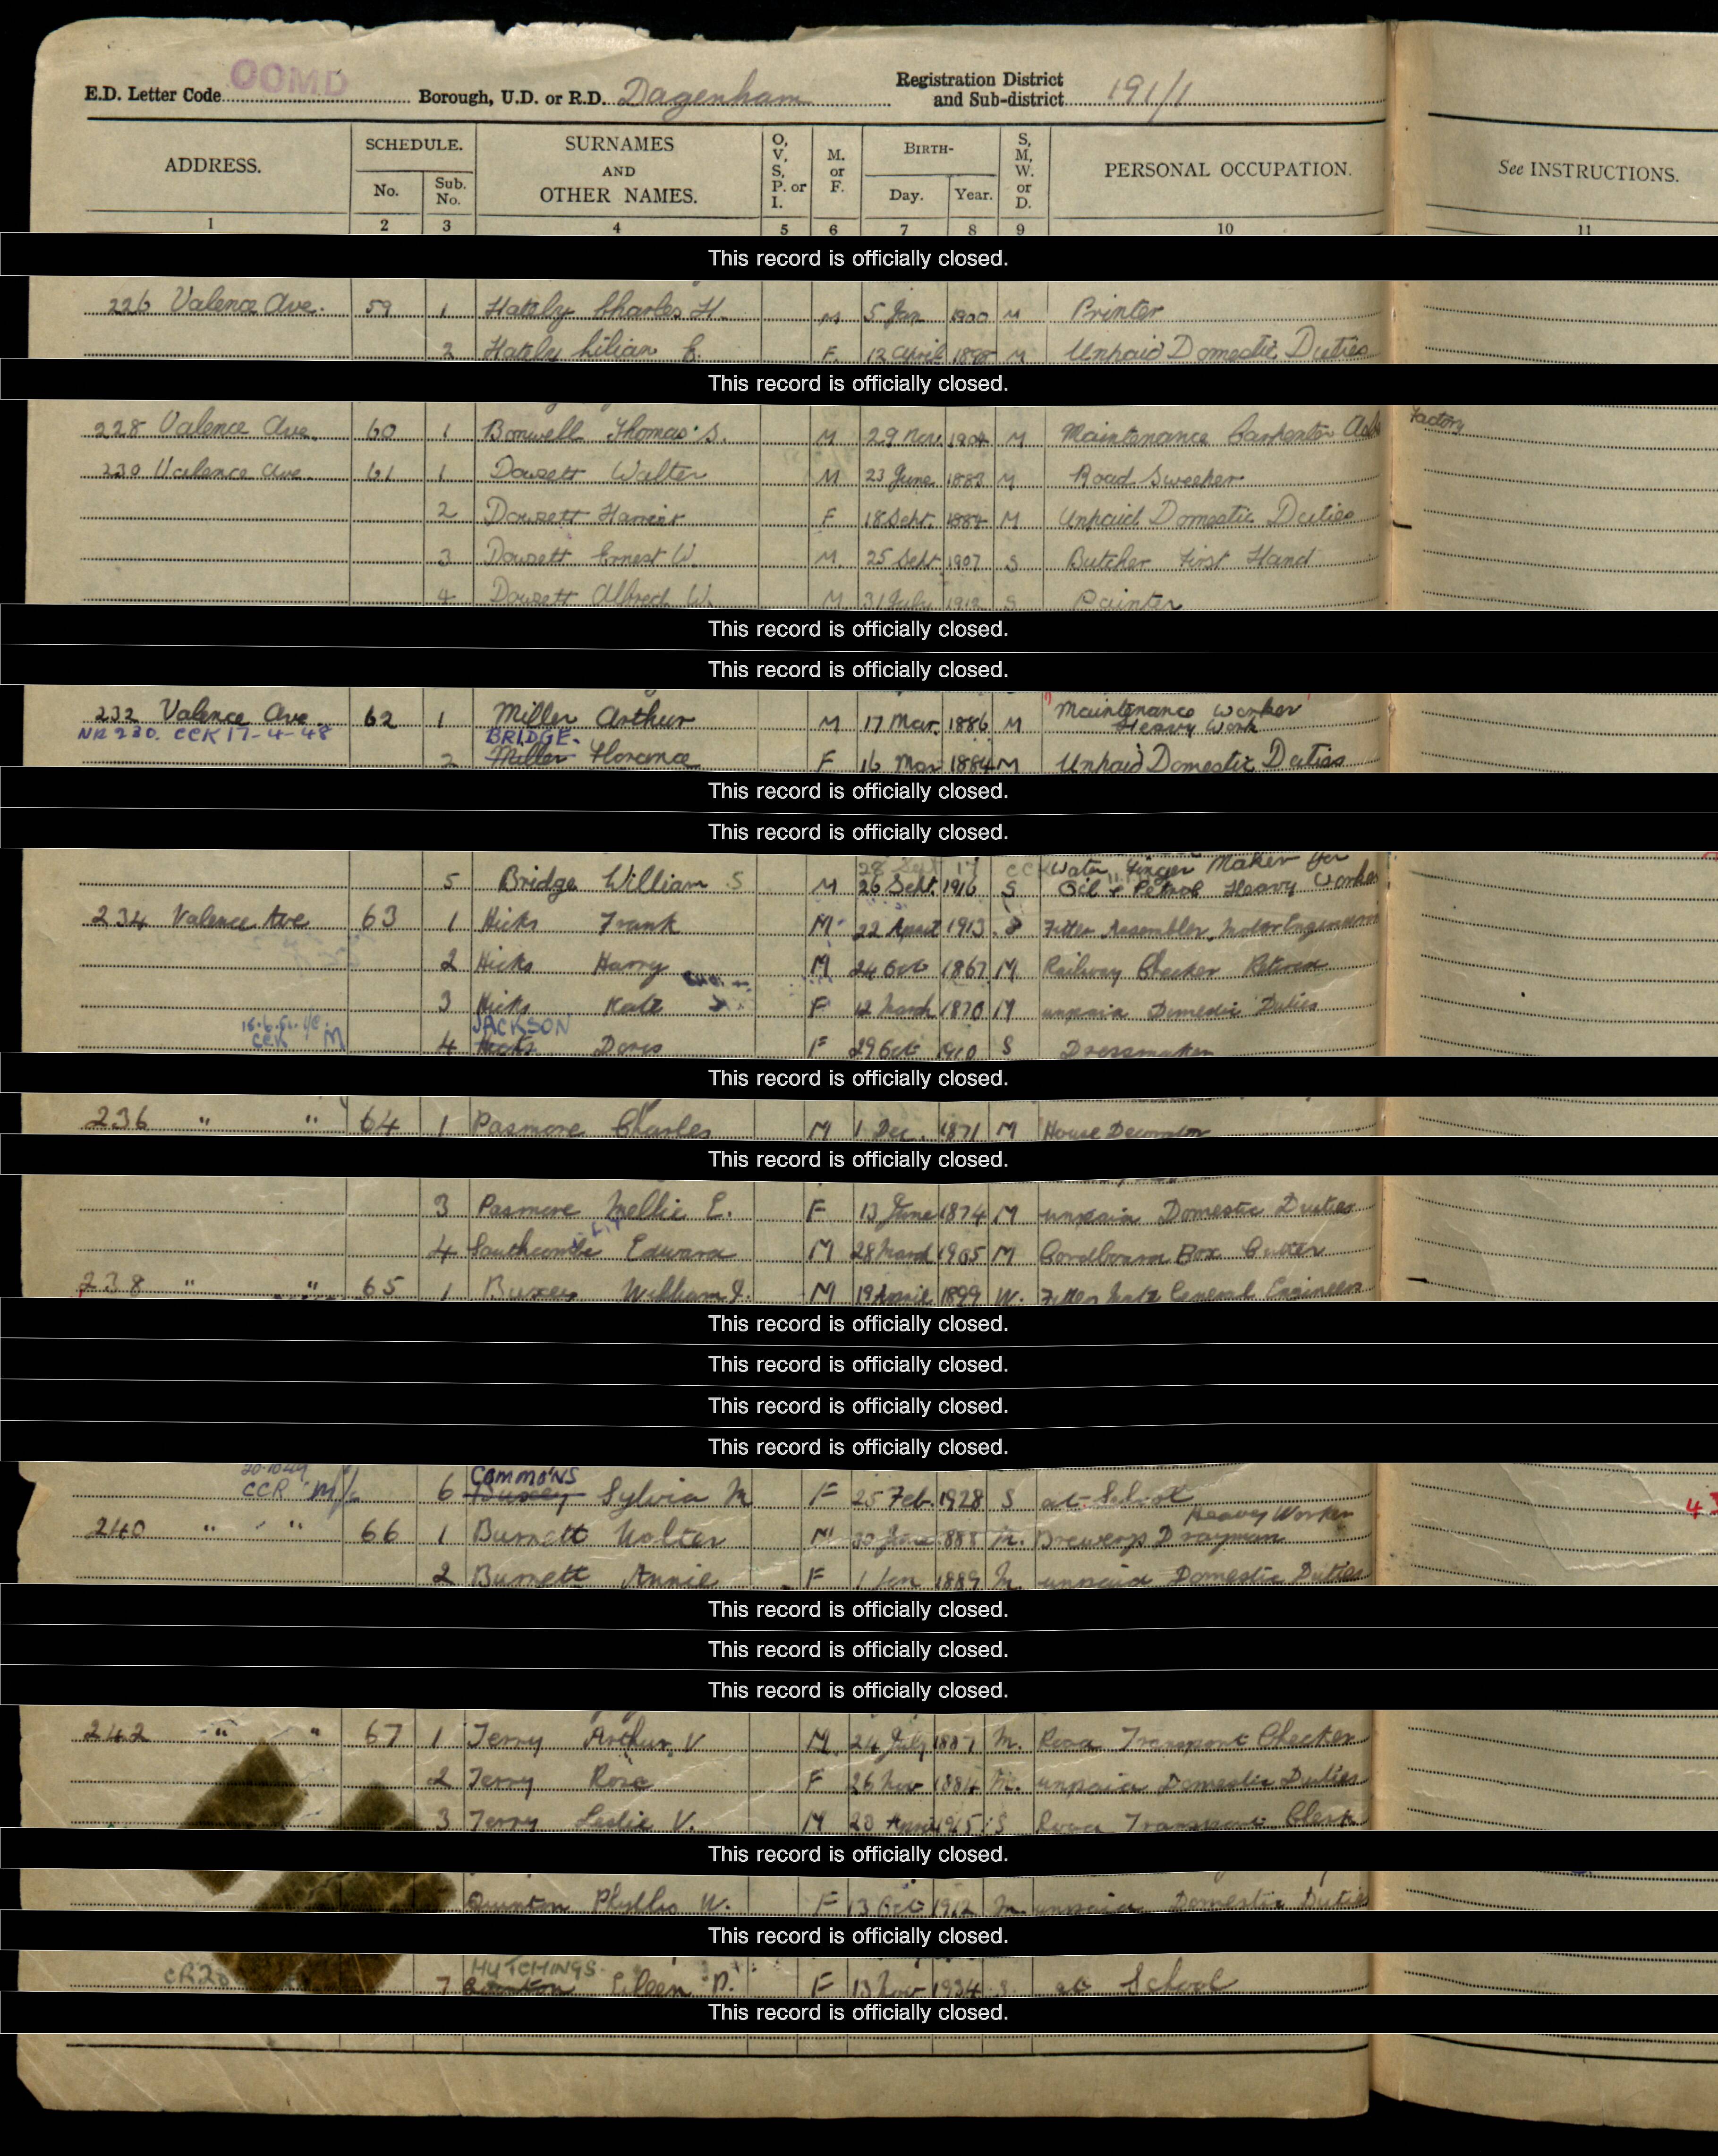 OOMD
E.D. Letter Code Borough, U.D. or R.D. Dagenham Registration District and Sub-district 191/1
ADDRESS. SCHEDULE. No. Sub. No. SURNAMES AND OTHER NAMES. O, V, S, P. or I. M. or F. BIRTH- Day. Year. S, M, W. or D. PERSONAL OCCUPATION. See INSTRUCTIONS.
1 2 3 4 5 6 7 8 9 10 11
This record is officially closed.
226 Valence Ave. 59 1 Hately Charles H. M 5 Jan 1900 M Printer
2 Hately Lilian E. F 12 April 1898 M Unpaid Domestic Duties
This record is officially closed.
228 Valence Ave. 60 1 Bonwell Thomas S. M 29 Nov. 1904 M Maintenance Carpenter Factory
230 Valence Ave. 61 1 Dowsett Walter M 23 June 1882 M Road Sweeper
2 Dowsett Harriet F 18 Sept. 1884 M Unpaid Domestic Duties
3 Dowsett Ernest W. M 25 Sept 1907 S Butcher First Hand
4 Dowsett Albert W. M 31 July 1912 S Painter
This record is officially closed.
This record is officially closed.
232 Valence Ave. 62 1 Miller Arthur M 17 Mar. 1886 M Maintenance Worker Heavy Work
NR 230. CCK 17-4-48 BRIDGE
2 Miller Florence F 16 Mar 1884 M Unpaid Domestic Duties
This record is officially closed.
This record is officially closed.
28 Sept 17 CCK Water Finger Maker for
5 Bridge William S M 26 Sept. 1916 S Oil & Petrol Heavy Worker
234 Valence Ave 63 1 Hicks Frank M 22 April 1913 S Fitter Assembler Motor Engineers
2 Hicks Harry M 24 Oct 1867 M Railway Checker Retired
3 Hicks Kate F 12 March 1870 M unpaid Domestic Duties
CCK M JACKSON
4 Hicks Doris F 29 Oct 1910 S Dressmaker
This record is officially closed.
236 " " 64 1 Pasmore Charles M 1 Dec. 1871 M House Decorator
This record is officially closed.
3 Pasmore Nellie E. F 13 June 1874 M unpaid Domestic Duties
4 Southcombe Edward M 28 March 1905 M Cardboard Box Cutter
238 " " 65 1 Buxey William J. M 19 April 1899 W. Fitters Mate General Engineers
This record is officially closed.
This record is officially closed.
This record is officially closed.
This record is officially closed.
CCR M/c COMMONS
6 Buxey Sylvia M F 25 Feb. 1928 S at School
Heavy Worker
240 " " 66 1 Burnett Walter M 30 June 1888 M. Brewery Drayman
2 Burnett Annie F 1 Jan 1889 M. unpaid Domestic Duties
This record is officially closed.
This record is officially closed.
This record is officially closed.
242 " " 67 1 Terry Arthur V M 24 July 1887 M. Road Transport Checker
2 Terry Rose F 26 Nov 1884 M. unpaid Domestic Duties
3 Terry Leslie V. M 28 April 1915 S Road Transport Clerk
This record is officially closed.
Quinton Phyllis W. F 13 Oct 1912 M unpaid Domestic Duties
This record is officially closed.
HUTCHINGS
7 Quinton Eileen P. F 13 Nov 1934 S at School
This record is officially closed.